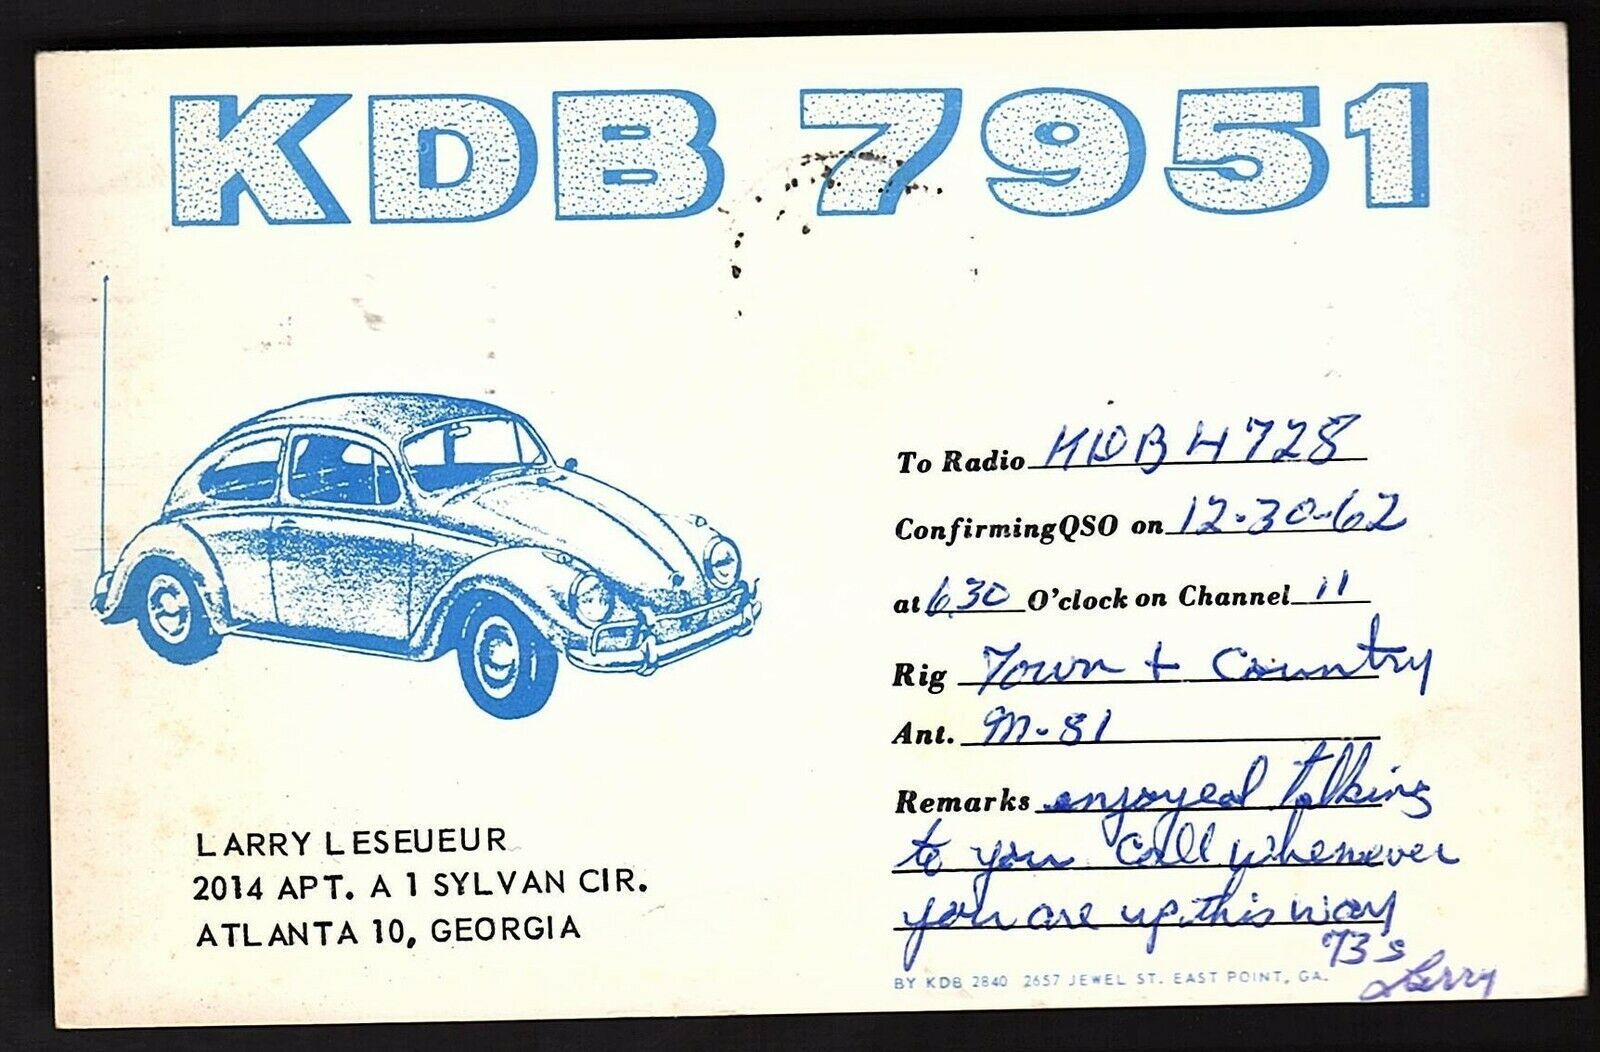 KDB 7951
To Radio KDB 4728
Confirming QSO on 12-30-62
at 6:30 O'clock on Channel 11
Rig Town + Country
Ant. M-81
Remarks enjoyed talking
to you Call whenever
you are up this way
73s
Larry
LARRY LESEUEUR
2014 APT. A 1 SYLVAN CIR.
ATLANTA 10, GEORGIA
BY KDB 2840 2657 JEWEL ST. EAST POINT, GA.